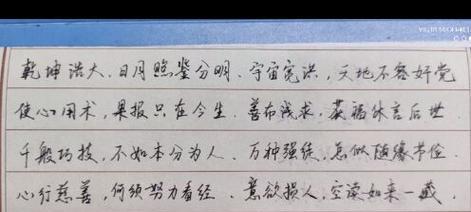 乾坤浩大、日月照鉴分明、宇宙宽洪，天地不容奸党
使心用术，果报只在今生、善布浅求，获福休言后世
千般巧技，不如本分为人、万种强徒，怎似随缘节俭
心行慈善，何须努力看经、意欲损人，空读如来一藏。